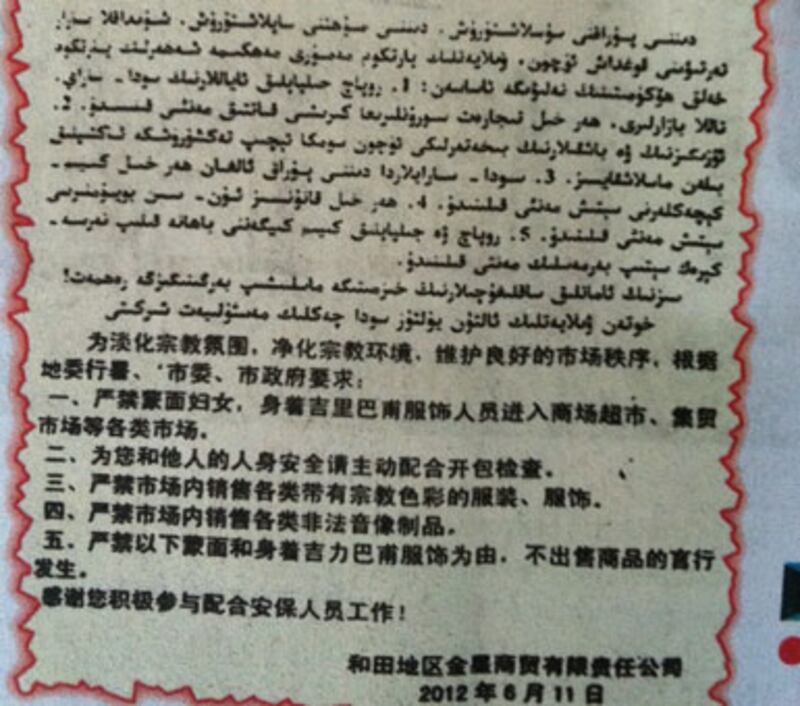 دىننىي پۇراقنى سۇسلاشتۇرۇش، دىننىي مۇھىتنى ساپلاشتۇرۇش،
ئۈچۈن، ۋىلايەتلىك پارتكوم مەمۇرىي مەھكىمە شەھەرلىك پارتكوم
خەلق ھۆكۈمىتىنىڭ تەلىپىگە ئاساسەن: 1. روپاچ جىلبابلىق ئاياللارنىڭ سودا ـ ساراي،
تاللا بازارلىرى، ھەر خىل تىجارەت سورۇنلىرىغا كىرىشى قاتتىق مەنئى قىلىنىدۇ. 2.
ئۆزىڭىزنىڭ ۋە باشقىلارنىڭ بىخەتەرلىكى ئۈچۈن سومكا ئېچىپ تەكشۈرۈشكە ئاكتىپلىق
بىلەن ماسلاشقايسىز. 3. سودا ـ سارايلاردا دىننىي پۇراق ئالغان ھەر خىل كىيىم ـ
كېچەكلەرنى سېتىش مەنئى قىلىنىدۇ. 4. ھەر خىل قانۇنسىز ئۈن ـ سىن بۇيۇملىرىنى
سېتىش مەنئى قىلىنىدۇ. 5. روپاچ ۋە جىلبابلىق كىيىم كىيگەننى باھانە قىلىپ نەرسە ـ
كېرەك سېتىپ بەرمەسلىك مەنئى قىلىنىدۇ.
سىزنىڭ ئامانلىق ساقلىغۇچىلارنىڭ خىزمىتىگە ماسلىشىپ بەرگىنىڭىزگە رەھمەت!
خوتەن ۋىلايەتلىك ئالتۇن يۇلتۇز سودا چەكلىك مەسئۇلىيەت شىركىتى
为淡化宗教氛围，净化宗教环境，维护良好的市场秩序，根据
地委行署、市委、市政府要求：
一、严禁蒙面妇女，身着吉里巴甫服饰人员进入商场超市、集贸
市场等各类市场。
二、为您和他人的人身安全请主动配合开包检查。
三、严禁市场内销售各类带有宗教色彩的服装、服饰。
四、严禁市场内销售各类非法音像制品。
五、严禁以下蒙面和身着吉力巴甫服饰为由，不出售商品的言行
发生。
感谢您积极参与配合安保人员工作！
和田地区金星商贸有限责任公司
2012年6月11日